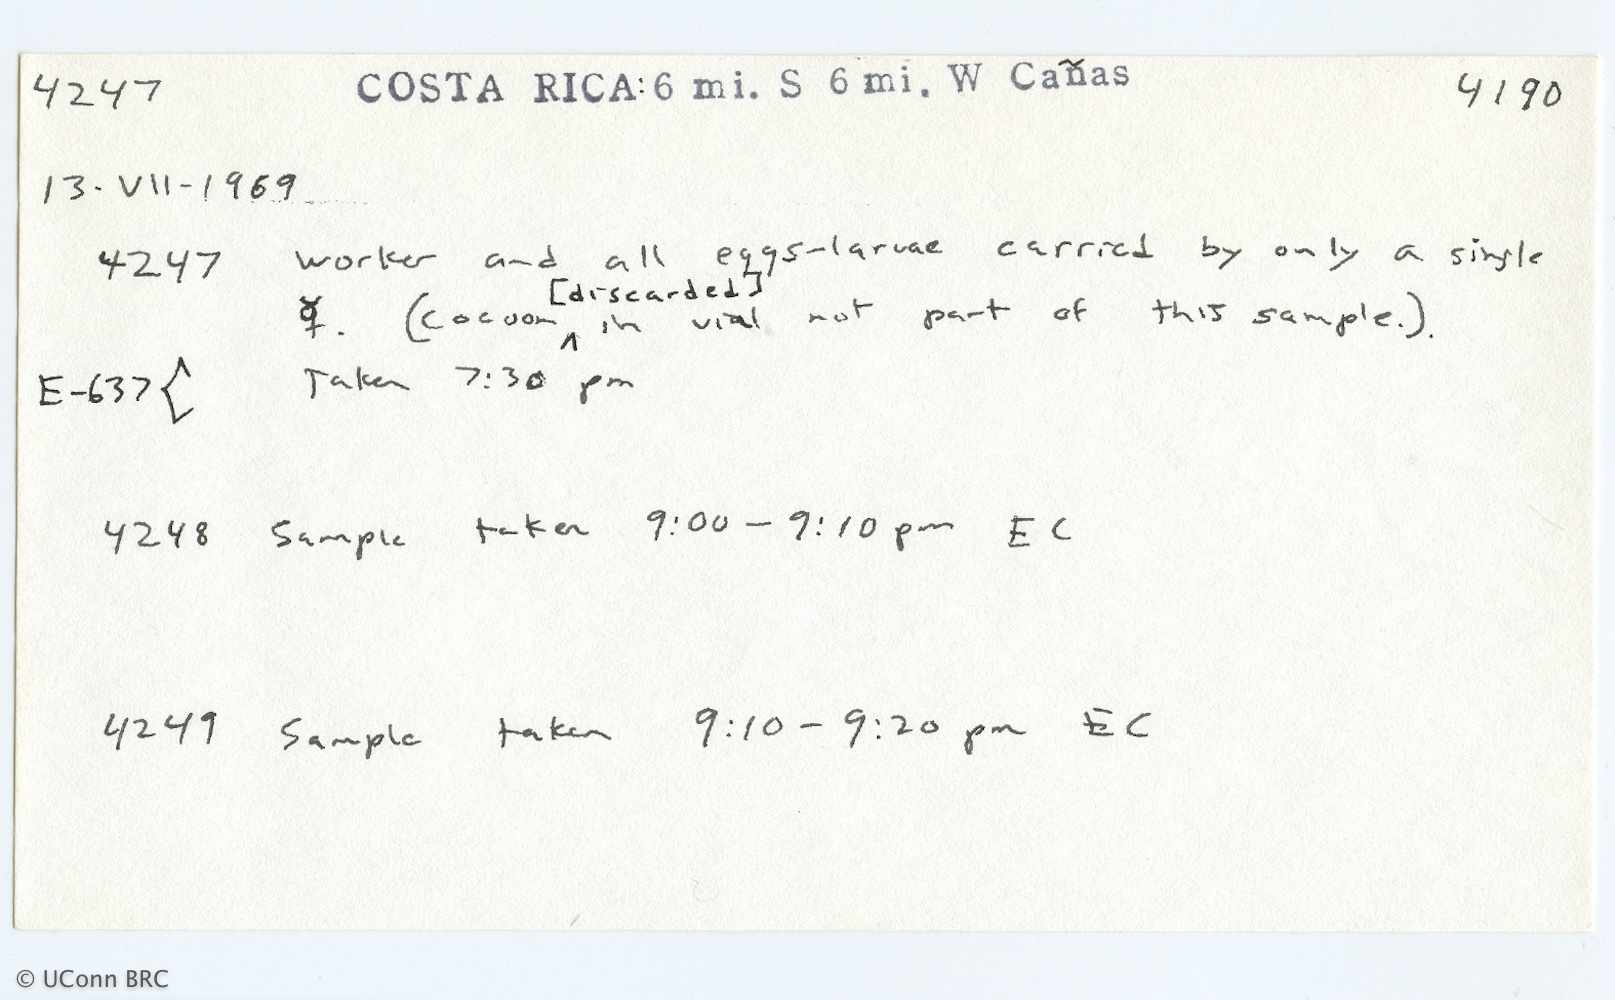 4247 COSTA RICA: 6 mi. S 6 mi. W Cañas 4190
13-VII-1969
4247 worker and all eggs-larvae carried by only a single
[discarded]
☿. (cocoon ^ in vial not part of this sample.).
E-637{ Taken 7:30 pm
4248 Sample taken 9:00-9:10 pm EC
4249 Sample taken 9:10-9:20 pm EC
© UConn BRC